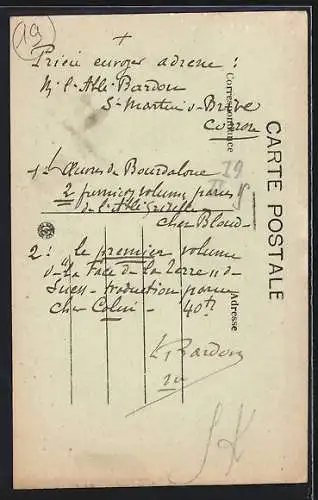 19
+
Prière envoyer adresse :
M. l'Abbé Bardon
St Martin s. Brive
Corrèze
1° L'Œuvres de Bourdaloue
2 premiers volumes parus
de l'Abbé Griselle
chez Bloud -
2 : " le premier volume
de "La Face de La Terre" de
Suess - traduction parue
chez Colin - 40 fr
L. Bardon
CARTE POSTALE
Correspondance
Adresse